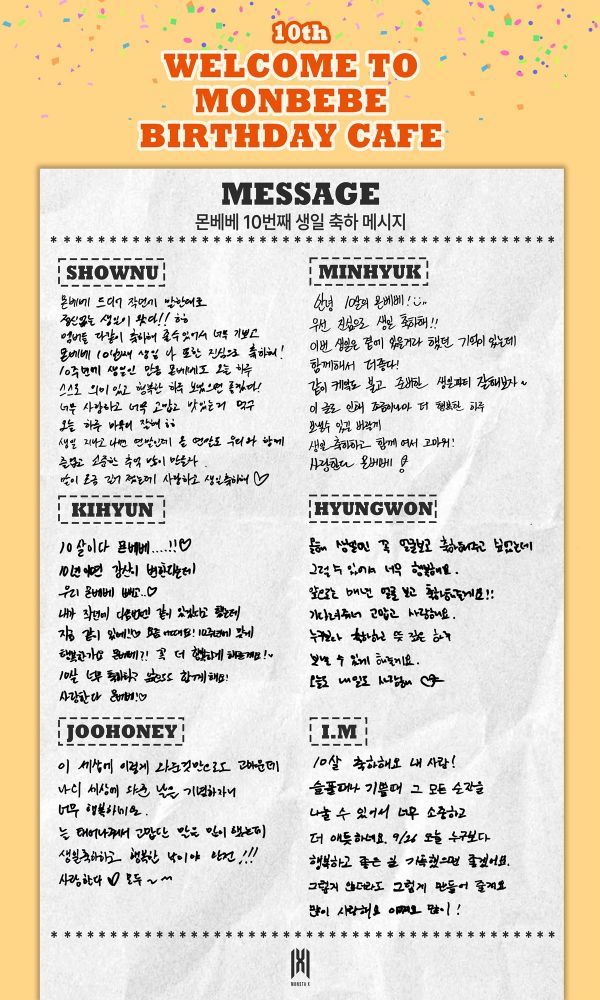 10th
WELCOME TO
MONBEBE
BIRTHDAY CAFE
MESSAGE
몬베베 10번째 생일 축하 메시지
SHOWNU
몬베베 드디어 작년에 말한대로
왔다!! ㅎㅎ
멤버들 다같이 축하해 줄수있어서 너무 기쁘고
몬베베 10번째 생일 나 또한 진심으로 축하해!
10주년에 생일인 만큼 몬베베도 오늘 하루
스스로 의미 있고 행복한 하루 보냈으면 좋겠다!
너무 사랑하고 너무 고맙고 맛있는거 먹구
오늘 하루
생일 지나고 나면 연말인데 올 연말도 우리와 함께
즐겁고 소중한 추억 많이 만들자.
말이 조금 길어 졌는데 사랑하고 생일축하해 ♡
MINHYUK
안녕 10살의 몬베베!
우선 진심으로 생일 축하해!!
이번 생일은 곁에 있을거라 했던 기억이 있는데
함께해서 더좋다!
같이 케익도 불고 소박한 생일파티 잘해보자~
이 글로 인해 조금이나마 더 행복한 하루
보낼수 있길 바랄게
생일 축하하고 함께 여서 고마워!
사랑한다 몬베베
KIHYUN
10살이다 몬베베....!!♡
10년이면 강산이 변한다는데
우리 몬베베 빼고..♡
내가 작년에 다음번엔 같이 있겠다고 했는데
지금 같이 있네!!♡ 요즘 어때요! 10주년에 맞게
행복한가요 몬베베?! 꼭 더 행복하게 해줄게요!~
10살 너무 축하하고 앞으로도 함께해요!
사랑한다 몬베베!♡
HYUNGWON
올해 생일엔 꼭 얼굴보고 축하해주고 싶었는데
그럴 수 있어서 너무 행복해요.
앞으로는 매년 얼굴 보고 축하해줄게요!!
기다려줘서 고맙고 사랑해요.
누구보다 축하하고 뜻 깊은 하루
보낼 수 있게 해줄게요.
오늘도 내일도 사랑해
JOOHONEY
이 세상에 이렇게 나온것만으로도 고마운데
나의 세상에 나온 날을 기념하자니
너무 행복하네요.
늘 태어나줘서 고맙다는 말은 많이 했는데
생일축하하고 행복한 날이야 완전!!!
사랑한다 ♡ 모두~~
I.M
10살 축하해요 내 사람!
슬플때나 기쁠때 그 모든 순간을
나눌 수 있어서 너무 소중하고
더 애틋하네요. 9/26 오늘 누구보다
행복하고 좋은 일 가득했으면 좋겠어요.
그렇게 안되더라도 그렇게 만들어 줄게요
많이 사랑해요 이따요 많이!
MONSTA X